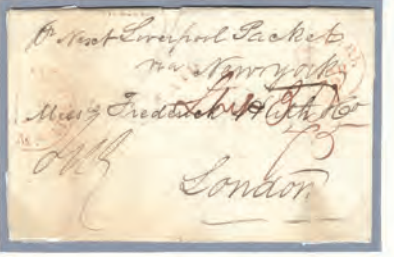 Pr Next Liverpool Packet
via New York
Mess Frederick Huth & Co
London